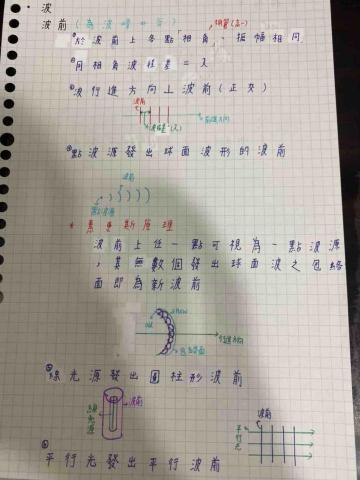 波
波前
於波前上各點「相角」、振幅相同
同相角波程差=λ
波行進方向⊥波前(正交)
波前
前進方向
波程差(λ)
點波源發出球面波形的波前
波前
點波源
*惠更斯原理
波前上任一點可視為一點波源
,其無數個發出球面波之包絡
面即為新波前
old
new
前進方向
包絡面
線光源發出圓柱形波前
線光源
波前
波前
平行光
平行光發出平行波前